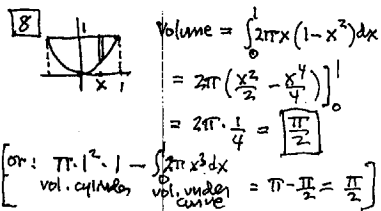 8
1
x 1
Volume = ∫₀¹ 2πx(1-x²)dx
= 2π(x²/2 - x⁴/4)]₀¹
= 2π·1/4 = π/2
[or: π·1²·1 - ∫₀¹ 2πx³dx = π-π/2 = π/2]
vol. cylinder vol. under
curve